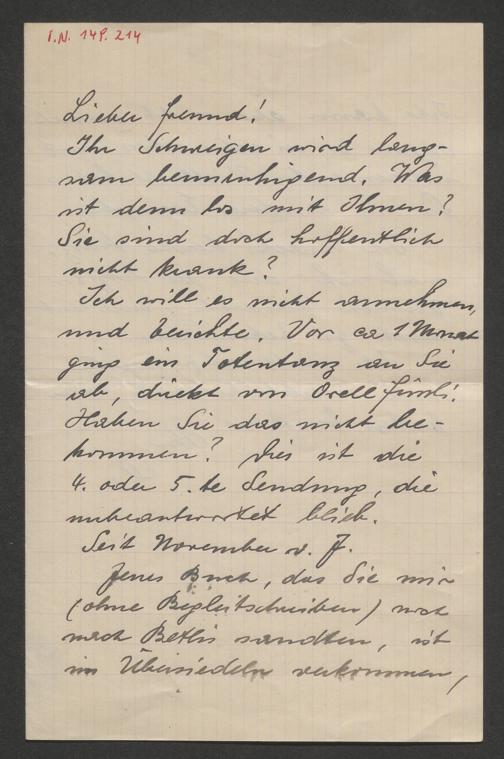 I.N. 149.214
Lieber Freund!
Ihr Schweigen wird lang-
sam beunruhigend. Was
ist denn los mit Ihnen?
Sie sind doch hoffentlich
nicht krank?
Ich will es nicht annehmen,
und berichte. Vor ca 1 Monat
ging ein Totentanz an Sie
ab, direkt von Orell Füssli.
Haben Sie das nicht be-
kommen? Dies ist die
4. oder 5. te Sendung, die
unbeantwortet blieb.
Seit November v. J.
Jenes Buch, das Sie mir
(ohne Begleitschreiben) noch
nach Betlis sandten, ist
im Übersiedeln verkommen,